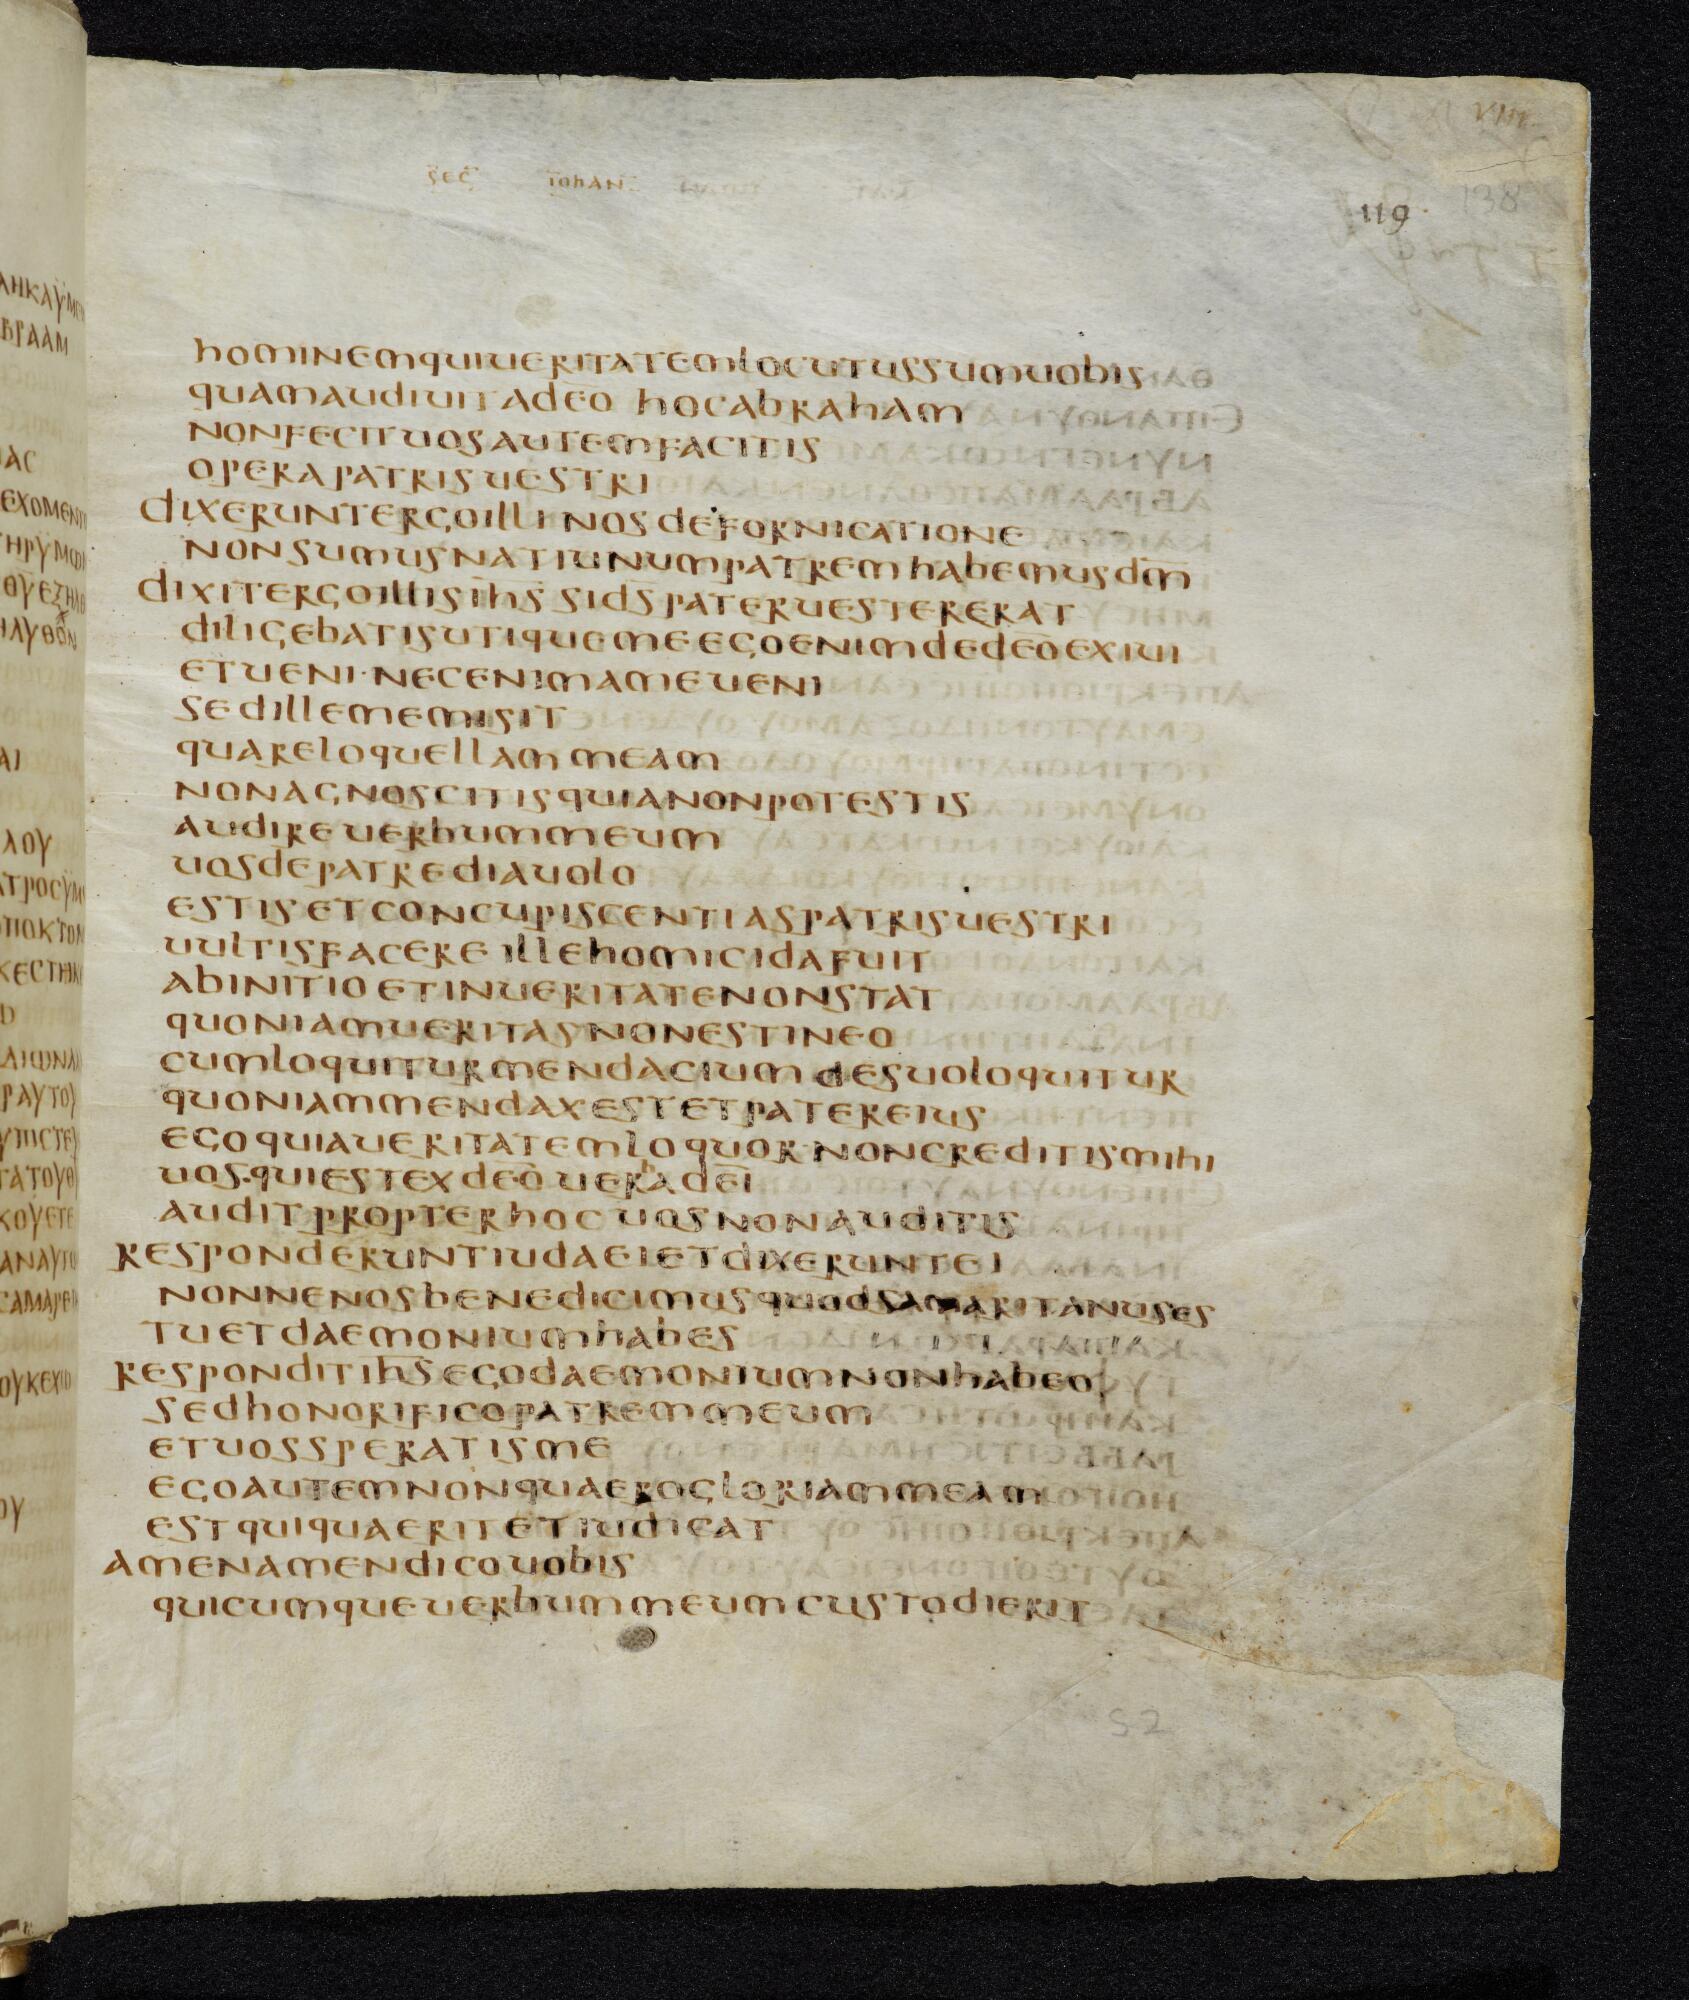 sec iohan
119
138
hominemquiueritatemlocutussumuobis
quamaudiuitadeō hocabraham
nonfecituosautemfacitis
operapatrisuestri
dixeruntergoilli nosdefornicatione
nonsumusnatiunumpatremhabemusdm̄
dixitergoillisih̄s sids̄pateruestererat
diligebatisutiquemeegoenimdedeōexiui
etueni·necenimameueni
sedillememisit
quareloquellammeam
nonagnoscitisquianonpotestis
audireuerbummeum
uosdepatrediauolo
estisetconcupiscentiaspatrisuestri
uultisfacere illehomicidafuit
abinitioetinueritatenonstat
quoniamueritasnonestineo
cumloquiturmendaciumdesuoloquitur
quoniammendaxestetpatereius
egoquiaueritatemloquor·noncreditismihi
uos·quiestexdeōuerbadeī
auditpropterhocuosnonauditis
responderuntiudaeietdixeruntei
nonnenosbenedicimusquodsamaritanuses
tuetdaemoniumhabes
responditih̄segodaemoniumnonhabeo
sedhonorificopatremmeum
etuossperatisme
egoautemnonquaerogloriammeam
estquiquaeritetiudicat
amenamendicouobis
quicumqueuerbummeumcustodierit
52